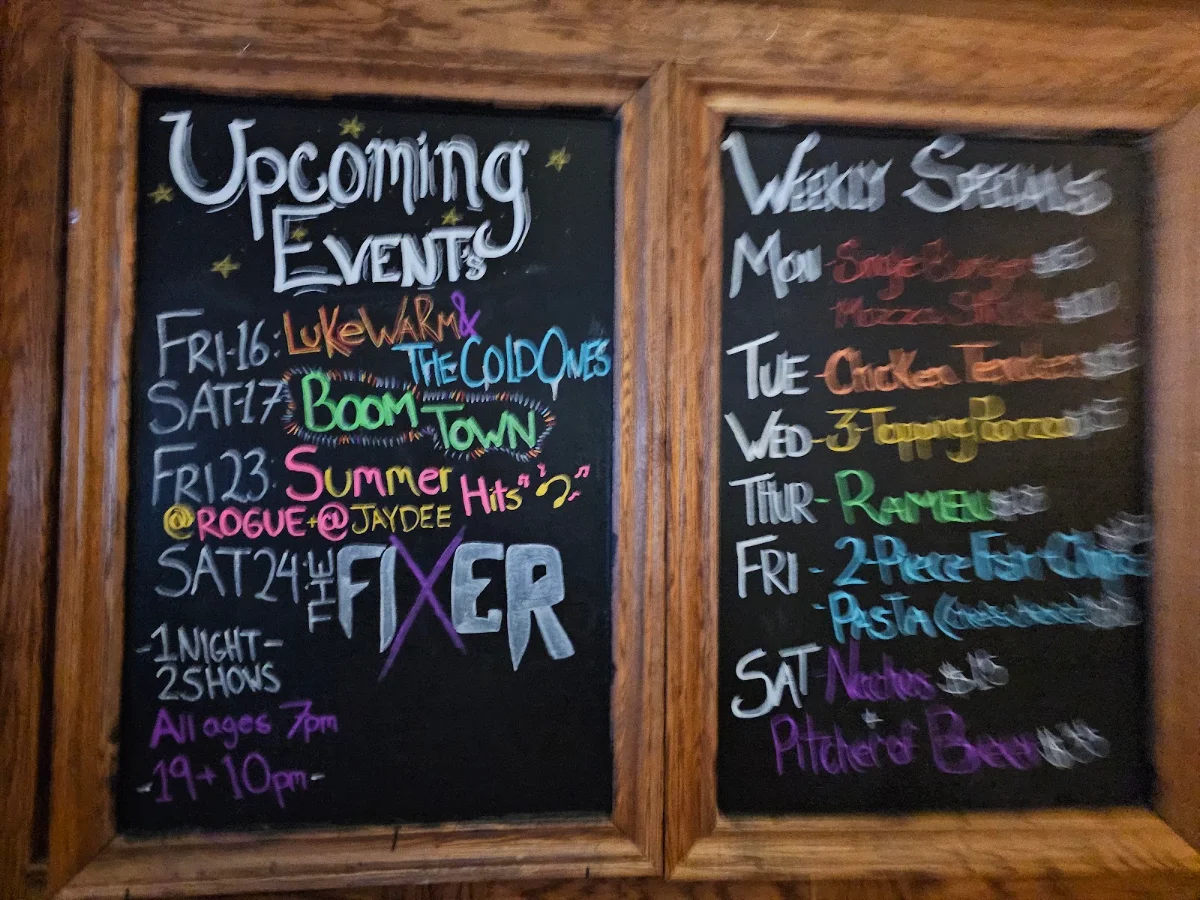 Upcoming
EVENT's
FRI-16: LUKEWARM &
THE COLD ONES
SAT-17 BOOM TOWN
FRI 23: Summer Hits"
@ROGUE + @JAYDEE
SAT 24: THE FIXER
-1 NIGHT-
2 SHOWS
All ages 7pm
-19+ 10pm-
WEEKLY SPECIALS
MON - Burger
Mozza Sticks
TUE - Chicken Tenders
WED - 3-Topping
THUR - RAMEN
FRI - 2-Piece Fish Chips
- PASTA
SAT - Nachos
+
Pitcher of Beer